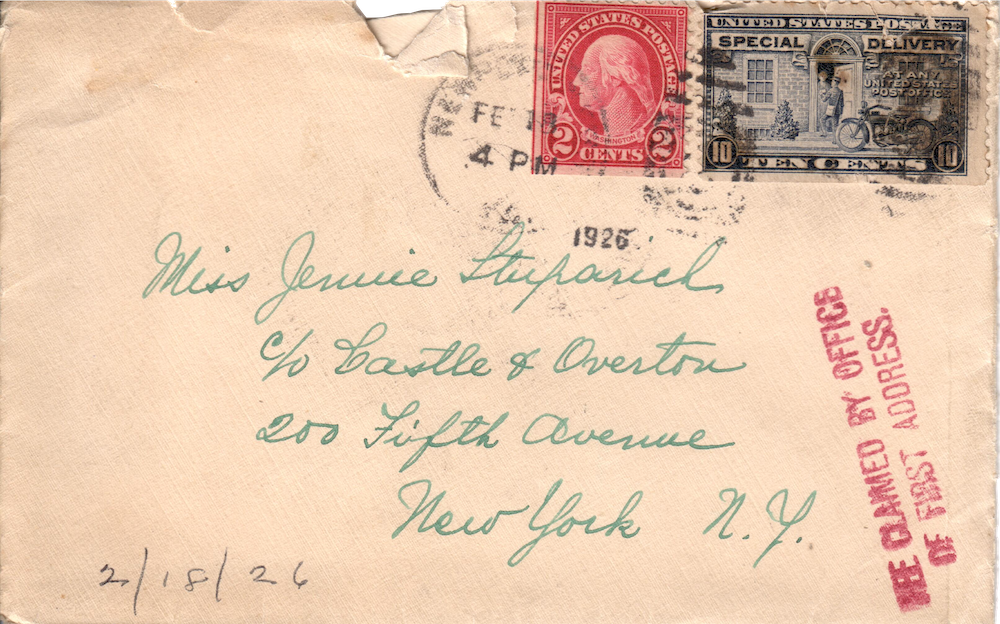 UNITED STATES POSTAGE
WASHINGTON
2 CENTS 2
UNITED STATES POSTAGE
SPECIAL DELIVERY
AT ANY
UNITED STATES
POST OFFICE
10 TEN CENTS 10
NEW
FEB 18
4 PM
1926
Miss Jennie Stuparich
c/o Castle & Overton
200 Fifth Avenue
New York N.Y.
FEE CLAIMED BY OFFICE
OF FIRST ADDRESS.
2/18/26